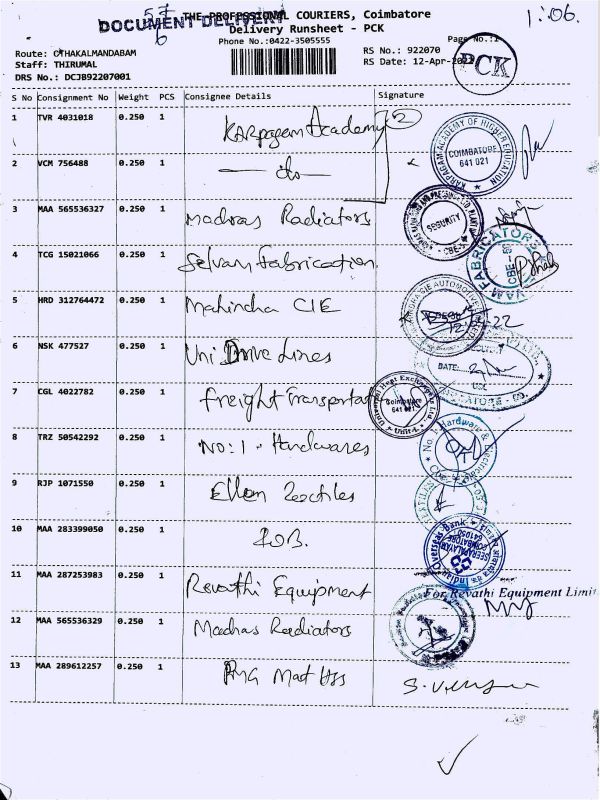 THE PROFESSIONAL COURIERS, Coimbatore
DOCUMENT DELIVERY
Delivery Runsheet - PCK
1:06.
Phone No.:0422-3505555
Page No.:1
Route: OTHAKALMANDABAM
RS No.: 922070
Staff: THIRUMAL
RS Date: 12-Apr-2022
PCK
DRS No.: DCJB92207001
S No Consignment No Weight PCS Consignee Details Signature
1 TVR 4031018 0.250 1 Karpagam Academy 2
KARPAGAM ACADEMY OF HIGHER EDUCATION COIMBATORE 641 021
2 VCM 756488 0.250 1 —do—
3 MAA 565536327 0.250 1 Madras Radiators
SECURITY
4 TCG 15021066 0.250 1 Selvam Fabrication.
5 HRD 312764472 0.250 1 Mahindra CIE
6 NSK 477527 0.250 1 Uni Drive Lines
DATE:
7 CGL 4022782 0.250 1 Freight Transportat
Coimbatore 641 021 Unit-I
8 TRZ 50542292 0.250 1 NO: 1 - Hardwares
9 RJP 1071550 0.250 1 Ellen Textiles
10 MAA 283399050 0.250 1 IOB.
11 MAA 287253983 0.250 1 Revathi Equipment
For Revathi Equipment Limit
12 MAA 565536329 0.250 1 Madras Radiators
13 MAA 289612257 0.250 1